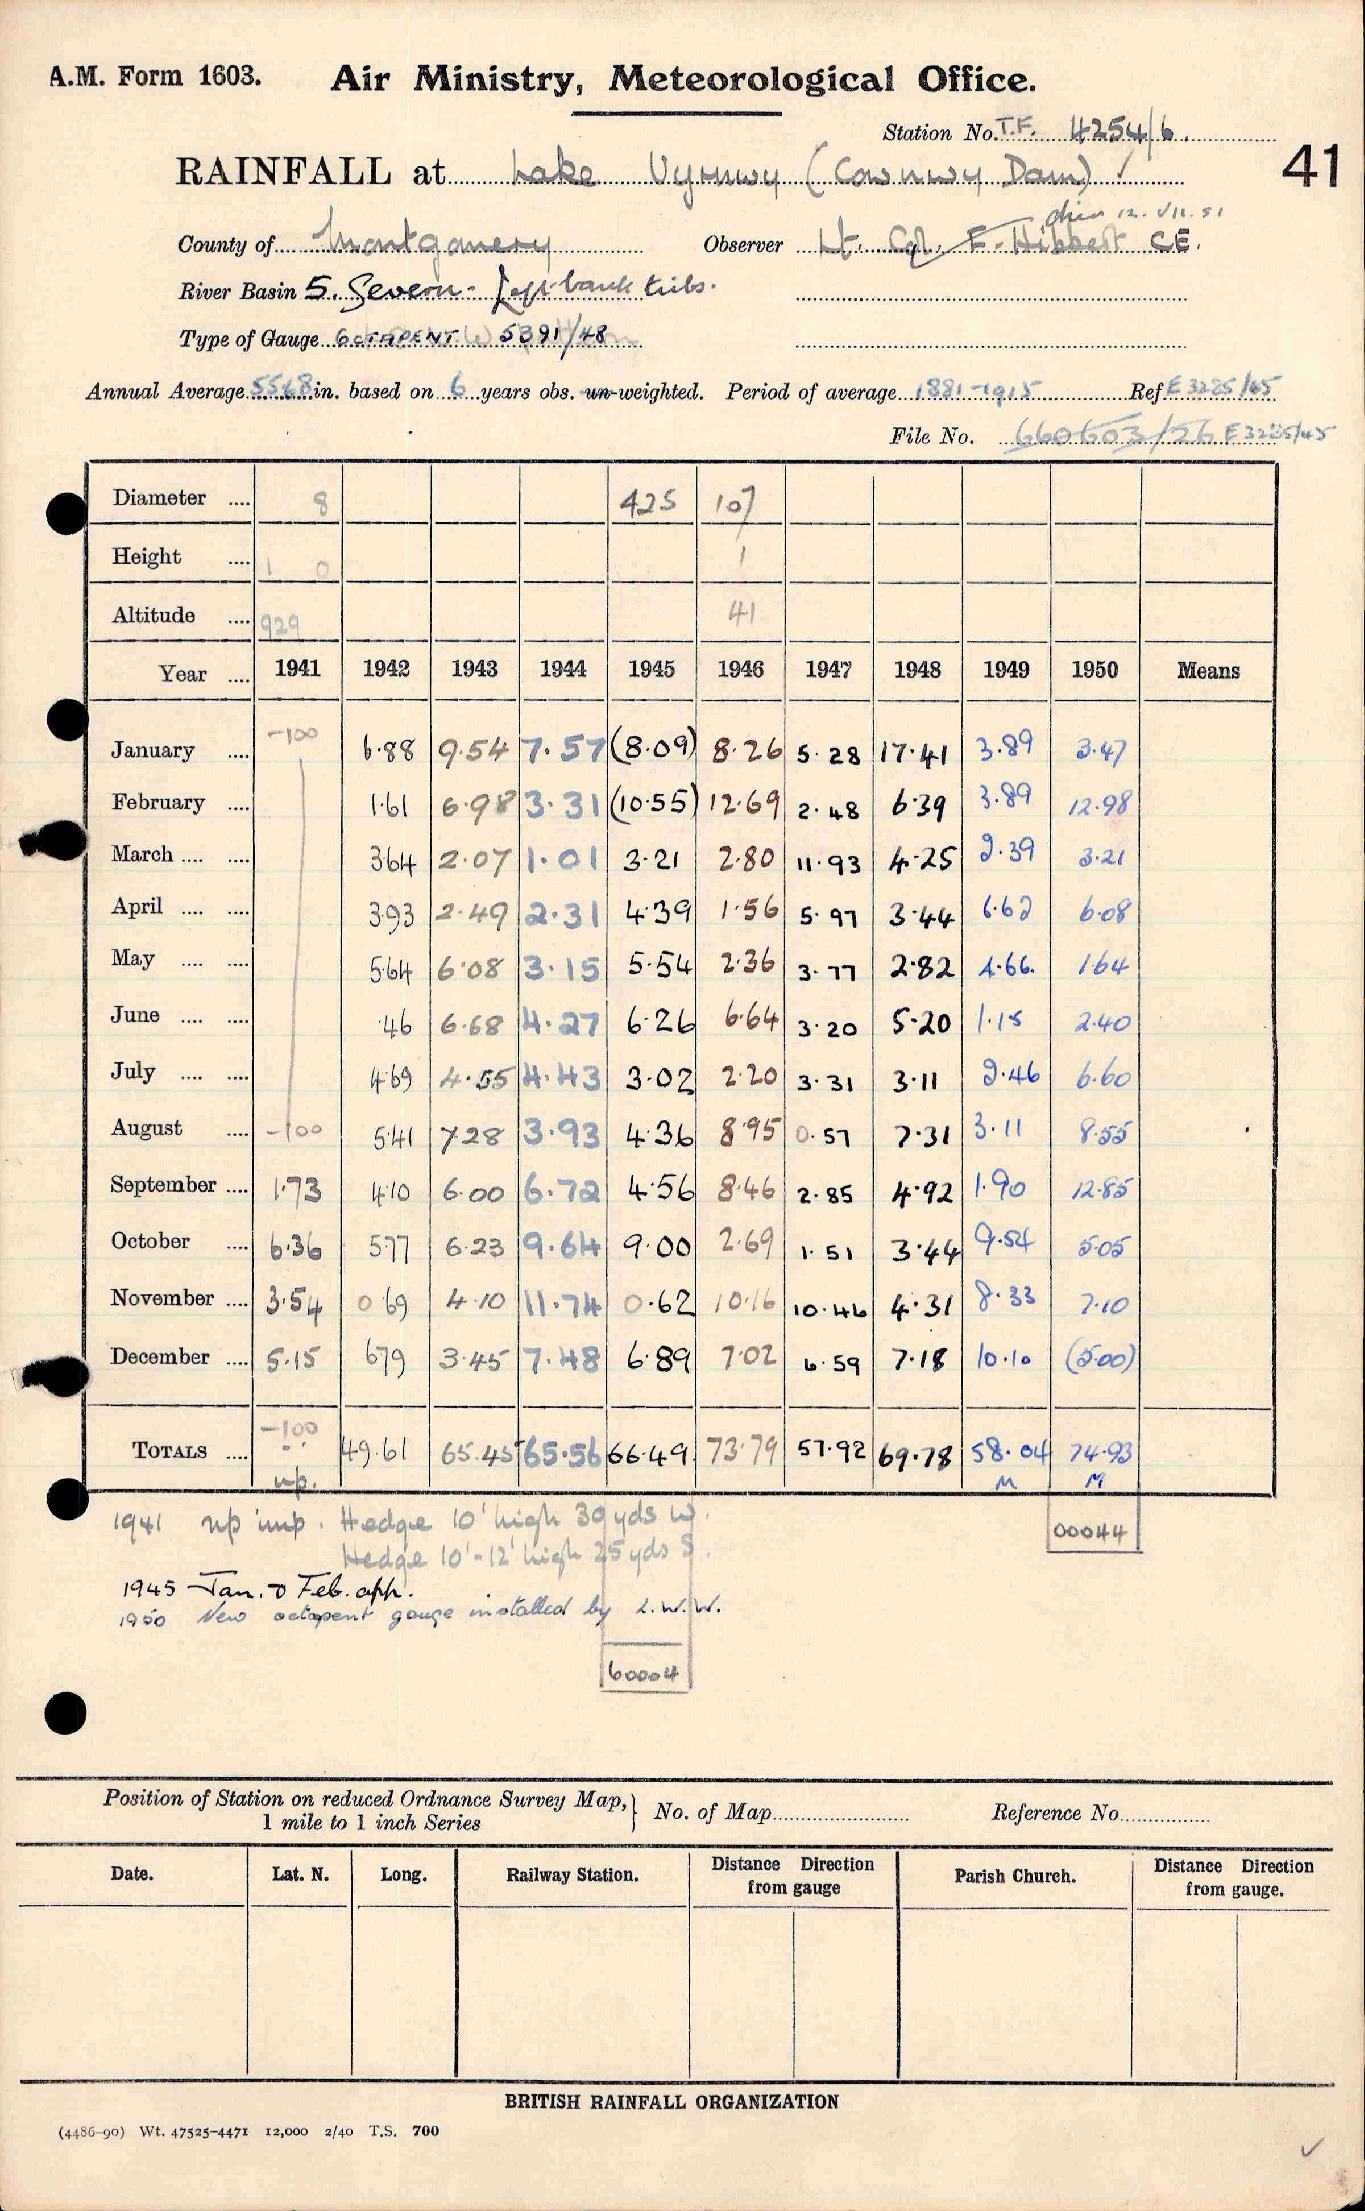 A.M. Form 1603. Air Ministry, Meteorological Office.
Station No. T.F. 4254/6.
41
RAINFALL at Lake Vyrnwy (Cownwy Dam) ✓
12.VII.51
County of Montgomery Observer Lt. Col. E. Hibbert C.E.
River Basin 5. Severn - Left bank tribs.
Type of Gauge OCTAPENT 5391/48
Annual Average 5568 in. based on 6 years obs. un-weighted. Period of average 1881-1915 Ref E3285/45
File No. 660603/26 E3285/45
Diameter .... 8 425 107
Height .... 1 0 1
Altitude .... 929 41
Year .... 1941 1942 1943 1944 1945 1946 1947 1948 1949 1950 Means
January .... -100 6.88 9.54 7.57 (8.09) 8.26 5.28 17.41 3.89 3.47
February .... 1.61 6.98 3.31 (10.55) 12.69 2.48 6.39 3.89 12.98
March .... .... 3.64 2.07 1.01 3.21 2.80 11.93 4.25 2.39 3.21
April .... .... 3.93 2.49 2.31 4.39 1.56 5.97 3.44 6.62 6.08
May .... .... 5.64 6.08 3.15 5.54 2.36 3.77 2.82 4.66. 1.64
June .... .... .46 6.68 4.27 6.26 6.64 3.20 5.20 1.15 2.40
July .... .... 4.69 4.55 4.43 3.02 2.20 3.31 3.11 2.46 6.60
August .... -100 5.41 7.28 3.93 4.36 8.95 0.57 7.31 3.11 8.55
September .... 1.73 4.10 6.00 6.72 4.56 8.46 2.85 4.92 1.90 12.85
October .... 6.36 5.77 6.23 9.64 9.00 2.69 1.51 3.44 9.54 5.05
November .... 3.54 0.69 4.10 11.74 0.62 10.16 10.46 4.31 8.33 7.10
December .... 5.15 6.79 3.45 7.48 6.89 7.02 6.59 7.18 10.10 (5.00)
TOTALS .... -100 49.61 65.45 65.56 66.49 73.79 57.92 69.78 58.04 74.93
np. M M
1941 np imp. Hedge 10' high 30 yds W.
00044
Hedge 10'-12' high 25 yds S.
1945 Jan. & Feb. app.
1950 New octapent gauge installed by L.W.W.
60004
Position of Station on reduced Ordnance Survey Map, 1 mile to 1 inch Series } No. of Map Reference No.
Date. Lat. N. Long. Railway Station. Distance Direction from gauge Parish Church. Distance Direction from gauge.
BRITISH RAINFALL ORGANIZATION
(4486-90) Wt. 47525-4471 12,000 2/40 T.S. 700
✓